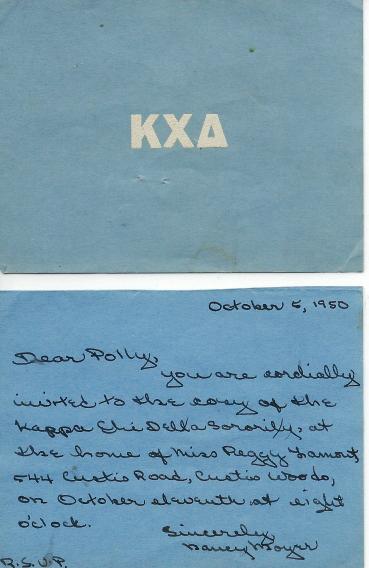 ΚΧΔ
October 5, 1950
Dear Polly,
You are cordially
invited to the cosy of the
Kappa Chi Delta Sorority, at
the home of Miss Peggy Lamont,
544 Custis Road, Custis Woods,
on October eleventh at eight
o'clock.
Sincerely,
Nancy Moyer
R.S.V.P.